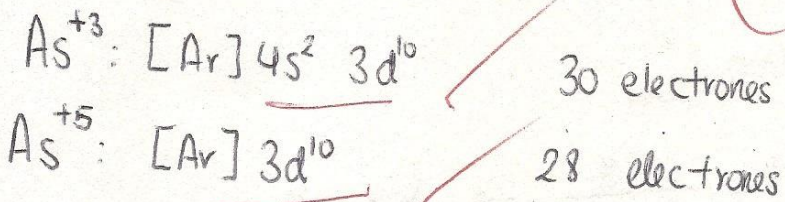 As⁺³: [Ar] 4s² 3d¹⁰ 30 electrones
As⁺⁵: [Ar] 3d¹⁰ 28 electrones